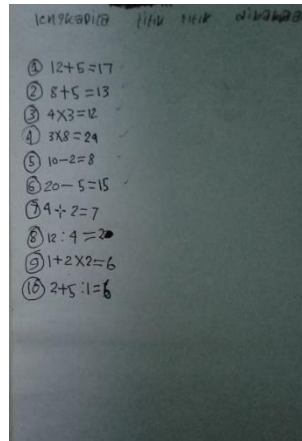 lengkapila titik titik dibawa
① 12+5=17
② 8+5=13
③ 4×3=12
④ 3×8=24
⑤ 10-2=8
⑥ 20-5=15
⑦ 4÷2=7
⑧ 12:4=20
⑨ 1+2×2=6
⑩ 2+5:1=6